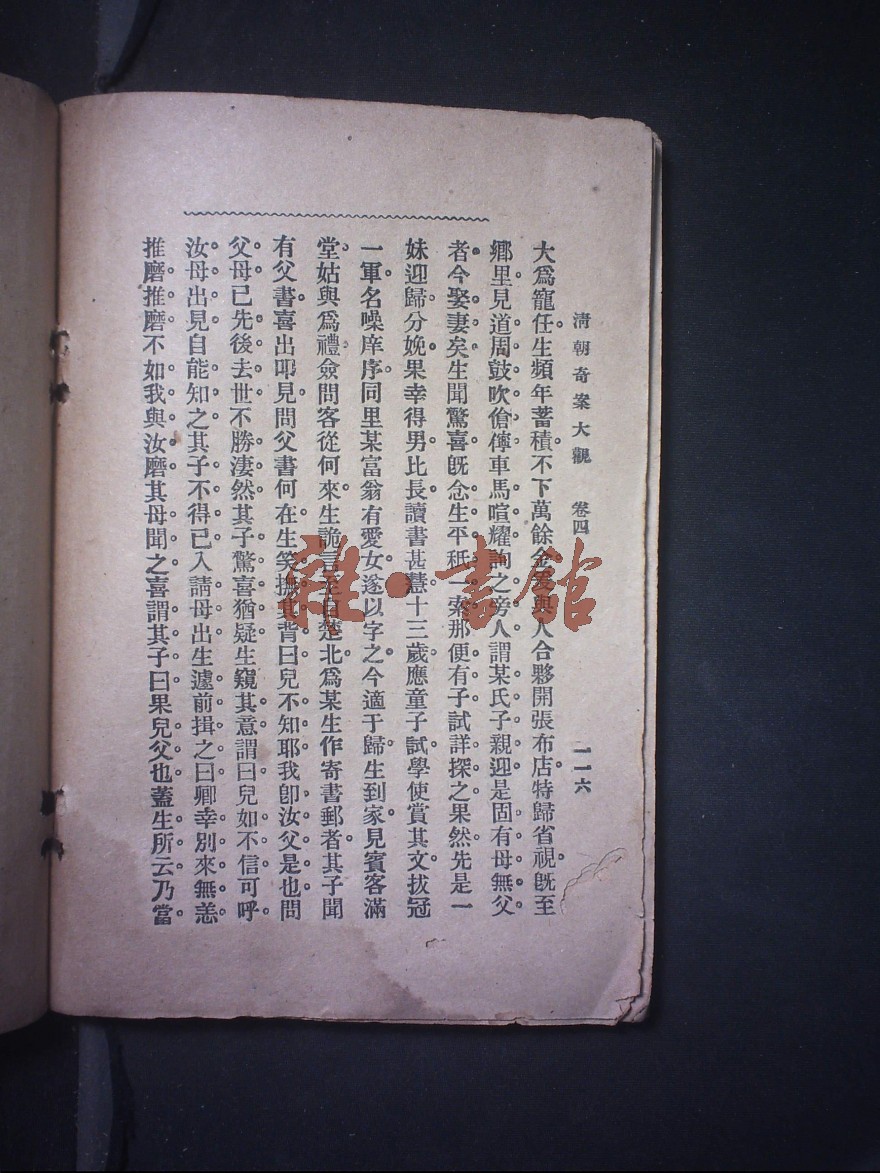 清朝奇案大觀 卷四 一一六
大爲寵任。生頻年蓄積。不下萬餘金。爰與人合夥開張布店。特歸省視。旣至
鄉里。見道周鼓吹傖儜。車馬喧耀。詢之旁人。謂某氏子親迎。是固有母無父
者。今娶妻矣。生聞驚喜。旣念生平秪一索。那便有子。試詳探之。果然。先是一
妹迎歸分娩。果幸得男。比長。讀書甚慧。十三歲應童子試。學使賞其文。拔冠
一軍。名噪庠序。同里某富翁有愛女。遂以字之。今適于歸。生到家。見賓客滿
堂。姑與爲禮。僉問客從何來。生詭言至自楚北。爲某生作寄書郵者。其子聞
有父書。喜出叩見。問父書何在。生笑撫其背曰。兒不知耶。我卽汝父是也。問
父母。已先後去世。不勝淒然。其子驚喜猶疑。生窺其意。謂曰。兒如不信。可呼
汝母出見。自能知之。其子不得已。入請母出。生遽前揖之曰。卿幸別來無恙。
推磨推磨。不如我與汝磨。其母聞之喜。謂其子曰。果兒父也。蓋生所云。乃當
雜·書館